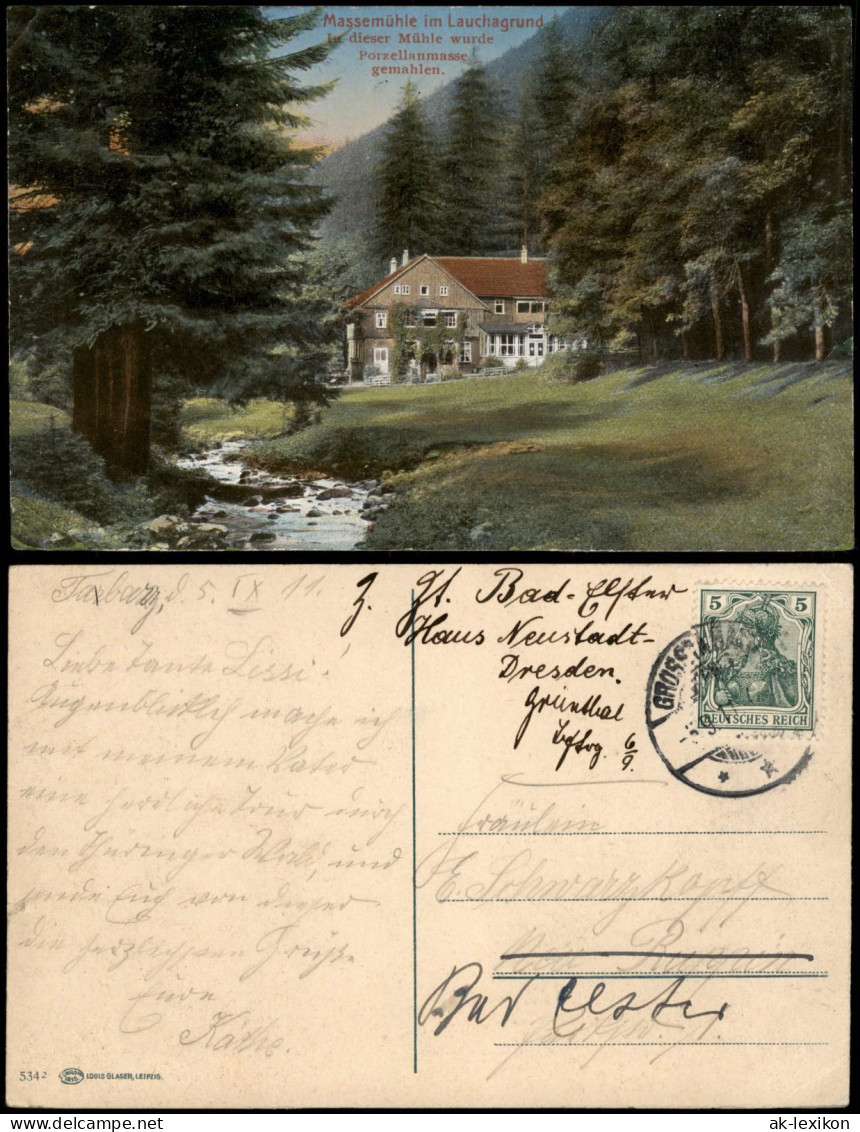 Massemühle im Lauchagrund
In dieser Mühle wurde
Porzellanmasse
gemahlen.
d. 5. IX 11.
Liebe Tante Lissi!
Augenblicklich mache ich
mit meinem Vater
eine herrliche Tour durch
den Thüringer Wald, und
sende Euch von dieser
die herzlichsten Grüße
Eure
Käthe.
z. Zt. Bad-Elster
Haus Neustadt-
Dresden.
Grünthal
6/9.
5 5
DEUTSCHES REICH
GROSS
Fräulein
E. Schwarzkopff
Bad Elster
5342
LOUIS GLASER, LEIPZIG.
www.delcampe.net
ak-lexikon